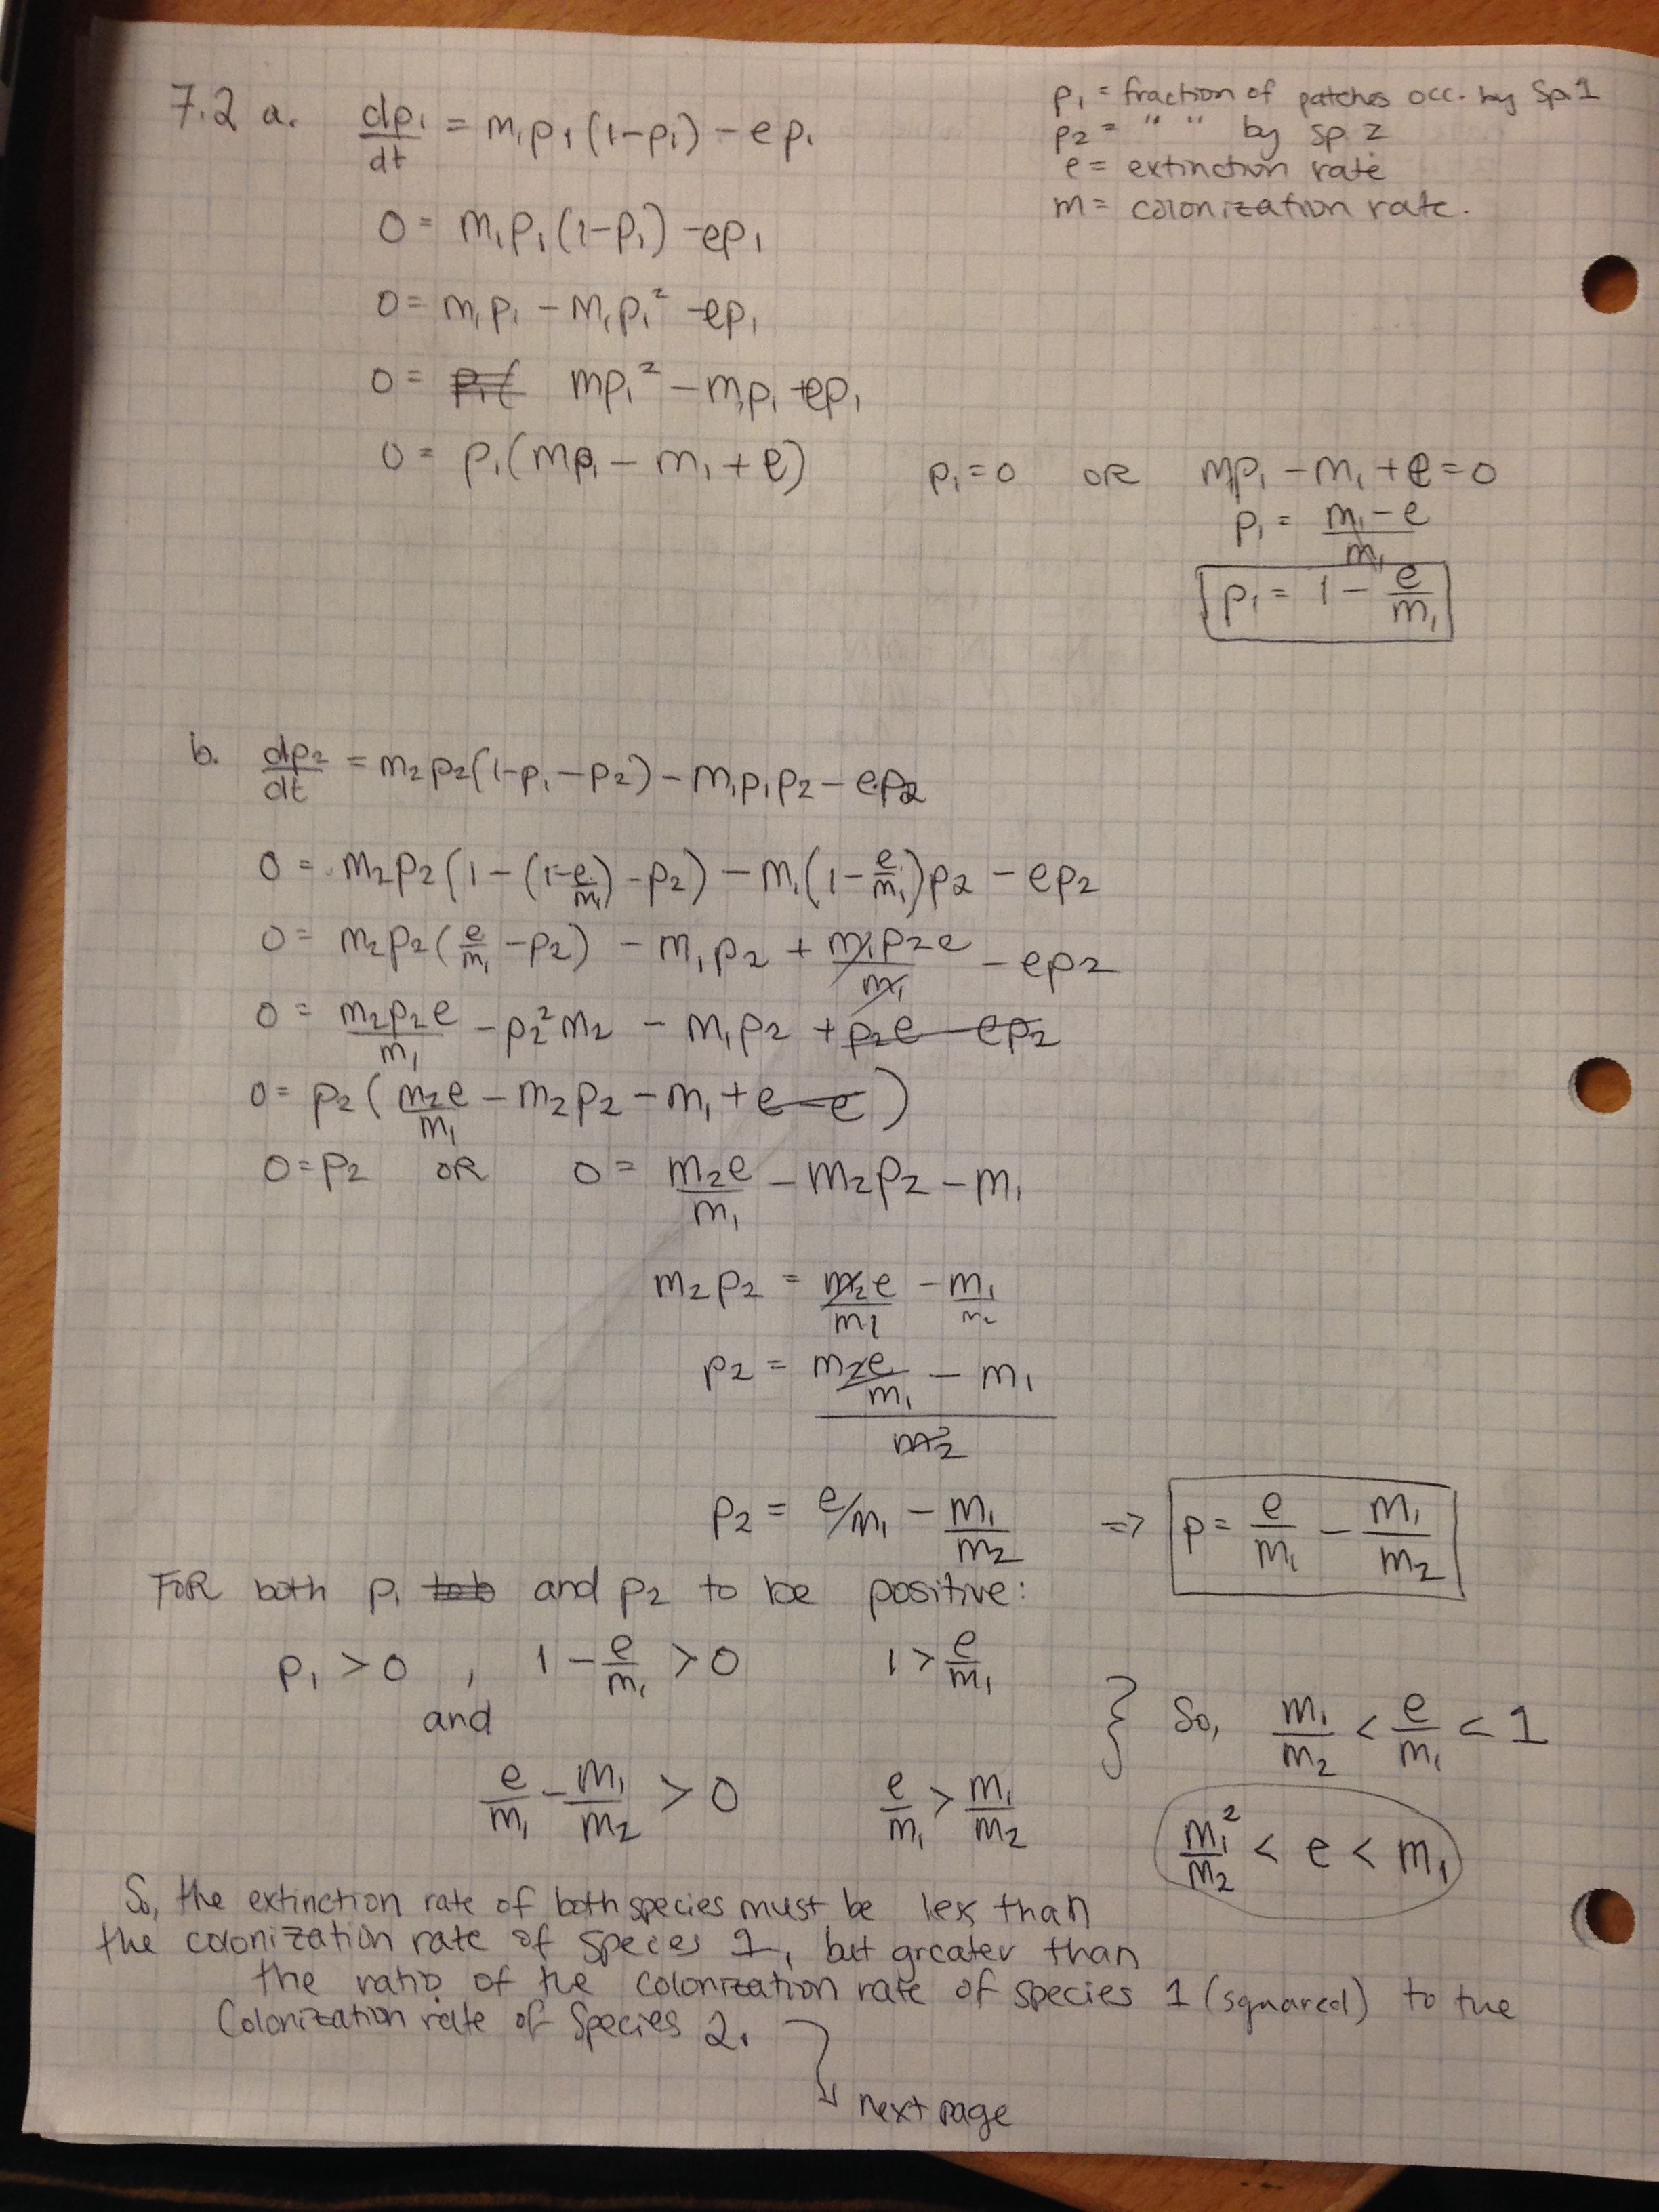 7.2 a. dp₁/dt = m₁p₁(1-p₁) - ep₁
p₁ = fraction of patches occ. by Sp. 1
p₂ = " " by sp. 2
e = extinction rate
m = colonization rate.
0 = m₁p₁(1-p₁) - ep₁
0 = m₁p₁ - m₁p₁² - ep₁
0 = mp₁² - m₁p₁ + ep₁
0 = p₁(mp₁ - m₁ + e) p₁ = 0 OR m₁p₁ - m₁ + e = 0
p₁ = (m₁ - e)/m₁
p₁ = 1 - e/m₁
b. dp₂/dt = m₂p₂(1-p₁-p₂) - m₁p₁p₂ - ep₂
0 = m₂p₂(1 - (1-e/m₁) - p₂) - m₁(1 - e/m₁)p₂ - ep₂
0 = m₂p₂(e/m₁ - p₂) - m₁p₂ + m₁p₂e/m₁ - ep₂
0 = m₂p₂e/m₁ - p₂²m₂ - m₁p₂ + p₂e - ep₂
0 = p₂(m₂e/m₁ - m₂p₂ - m₁ + e - e)
0 = p₂ OR 0 = m₂e/m₁ - m₂p₂ - m₁
m₂p₂ = m₂e/m₁ - m₁/m₂
p₂ = (m₂e/m₁ - m₁)/m₂
p₂ = e/m₁ - m₁/m₂ => p = e/m₁ - m₁/m₂
FOR both p₁ and p₂ to be positive:
p₁ > 0 , 1 - e/m₁ > 0 1 > e/m₁
and
} So, m₁/m₂ < e/m₁ < 1
e/m₁ - m₁/m₂ > 0 e/m₁ > m₁/m₂
m₁²/m₂ < e < m₁
So, the extinction rate of both species must be less than
the colonization rate of species 1, but greater than
the ratio of the colonization rate of species 1 (squared) to the
Colonization rate of Species 2.
next page